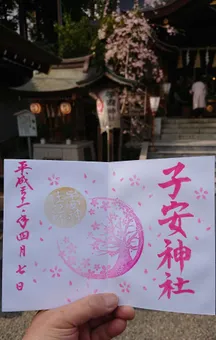 子安神社
平成三十一年四月七日